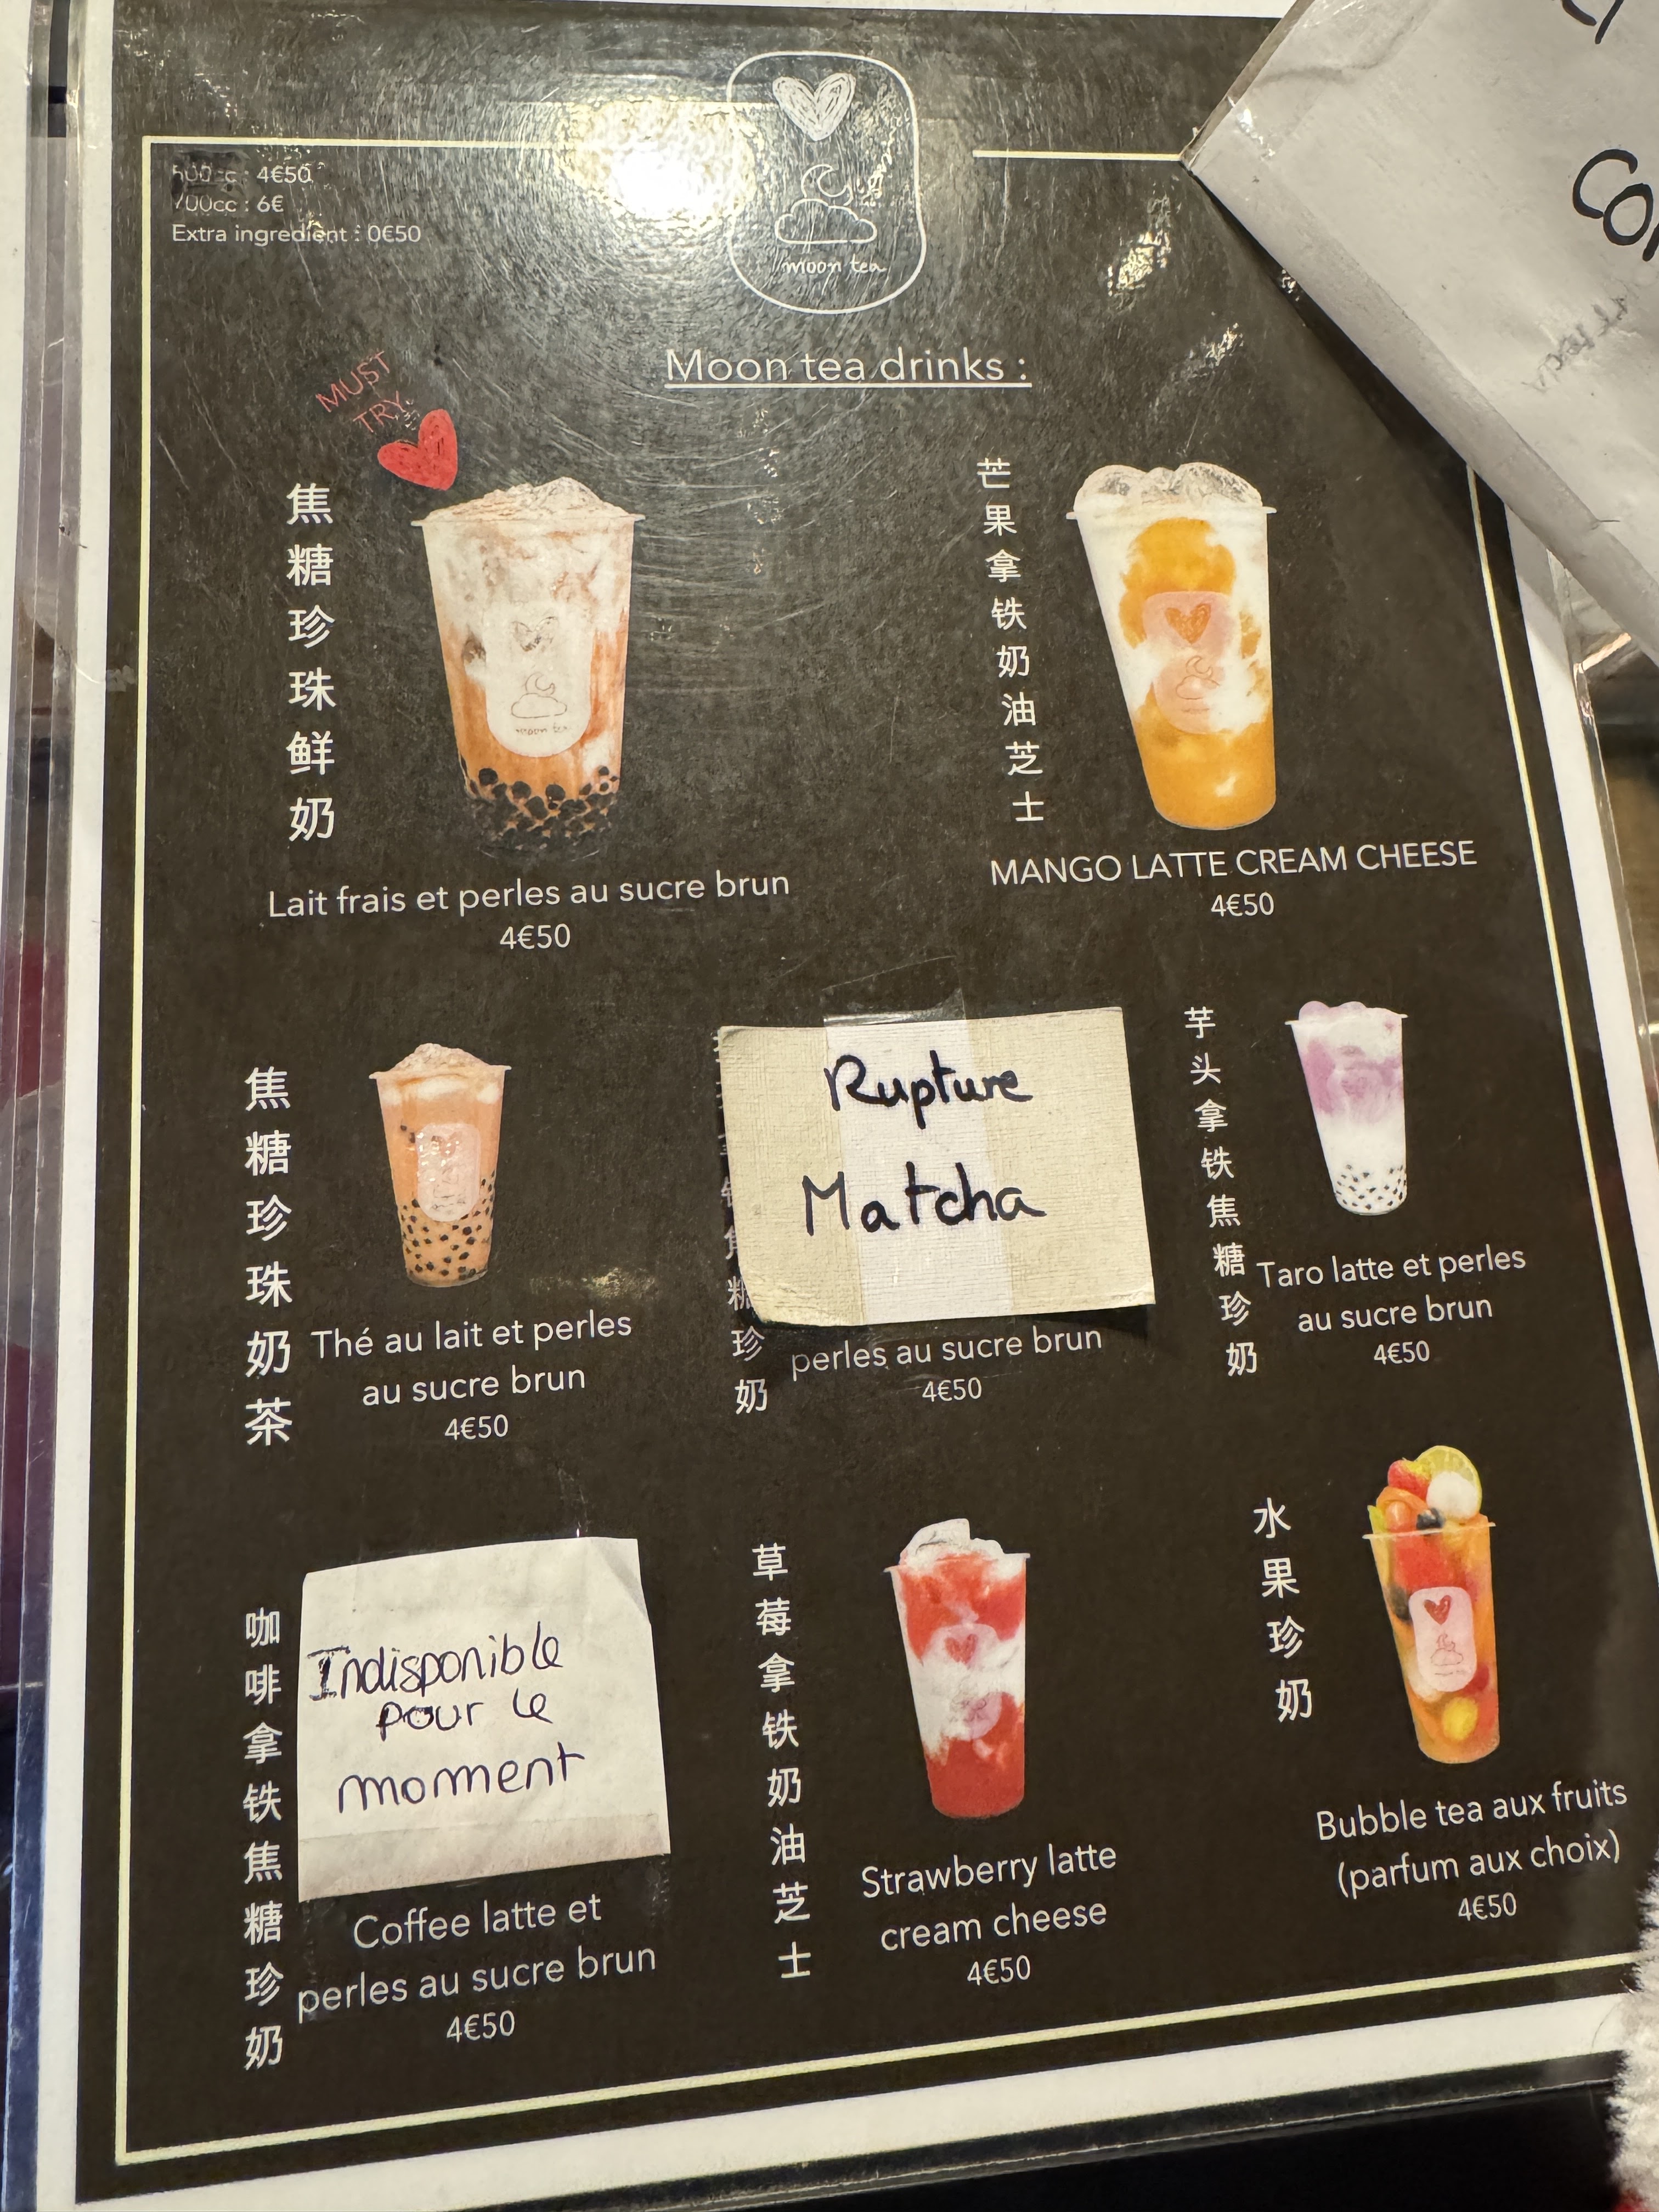 500cc : 4€50
700cc : 6€
Extra ingredient : 0€50
moon tea
Moon tea drinks :
MUST
TRY
焦糖珍珠鲜奶
Lait frais et perles au sucre brun
4€50
芒果拿铁奶油芝士
MANGO LATTE CREAM CHEESE
4€50
焦糖珍珠奶茶
Thé au lait et perles
au sucre brun
4€50
Rupture
Matcha
糖珍奶
perles au sucre brun
4€50
芋头拿铁焦糖珍奶
Taro latte et perles
au sucre brun
4€50
咖啡拿铁焦糖珍奶
Indisponible
pour le
moment
Coffee latte et
perles au sucre brun
4€50
草莓拿铁奶油芝士
Strawberry latte
cream cheese
4€50
水果珍奶
Bubble tea aux fruits
(parfum aux choix)
4€50